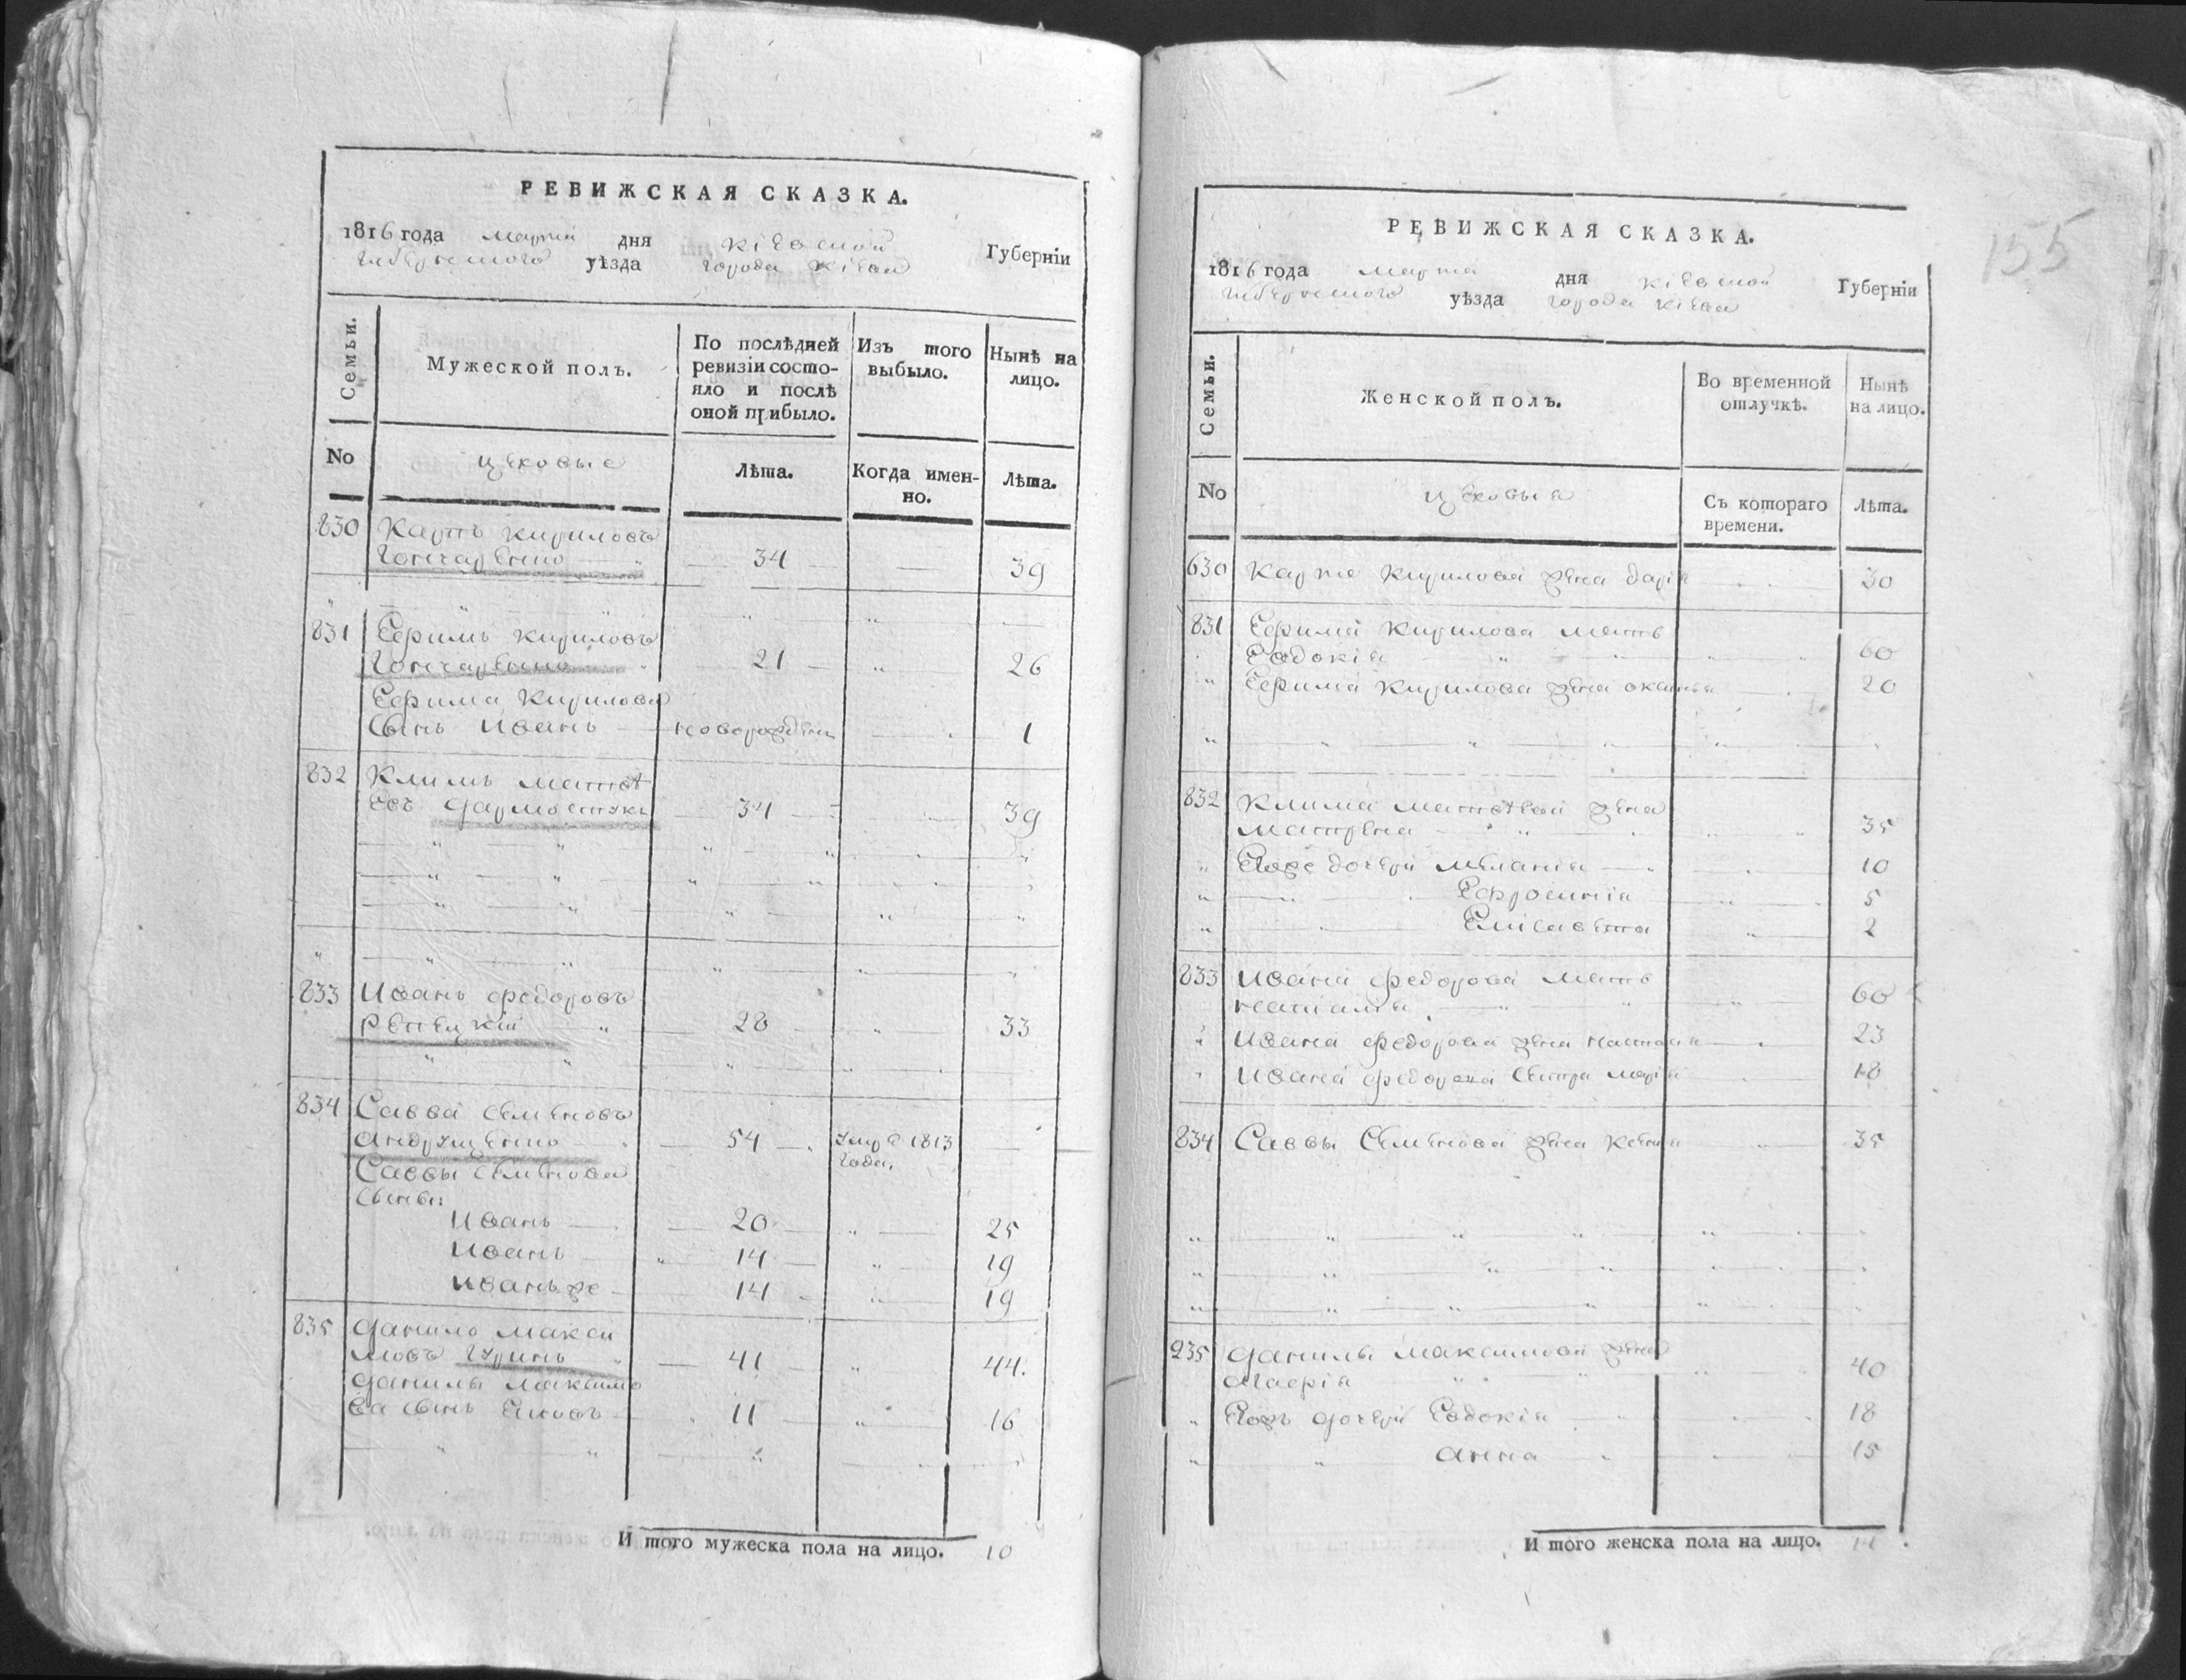 РЕВИЖСКАЯ СКАЗКА.
1816 года марта дня кіевской Губерніи
уѣзда города Кіева
Семьи.
Мужеской полъ.
По послѣдней ревизіи состояло и послѣ оной прибыло.
Изъ того выбыло.
Нынѣ на лицо.
No
цеховые
Лѣта.
Когда именно.
Лѣта.
830 Карпъ Кириловъ
Гончаренко 34 39
831 Ефимъ Кириловъ
Гончаренко 21 26
Ефима Кирилова
сынъ Иванъ новорожденъ 1
832 Климъ Матвѣ
евъ 34 39
833 Иванъ Федоровъ
Репецкій 28 33
834 Савва Семеновъ
Андрущенко 54 умре 1813
года.
Саввы Семенова
сыны:
Иванъ 20 25
Иванъ 14 19
Иванъ же 14 19
835 Данило Макси
мовъ Гуринъ 41 44.
Данилы Максимо
ва сынъ Яковъ 11 16
И того мужеска пола на лицо. 10
155
РЕВИЖСКАЯ СКАЗКА.
1816 года марта дня кіевской Губерніи
уѣзда города Кіева
Семьи.
Женской полъ.
Во временной отлучкѣ.
Нынѣ на лицо.
No
цеховыя
Съ котораго времени.
Лѣта.
830 Карпа Кирилова жена Дарія 30
831 Ефима Кирилова мать
Евдокія 60
Ефима Кирилова жена 20
832 Клима Матвѣева жена
Матрена 35
Его же дочери Меланія 10
Ефросинія 5
Елисавета 2
833 Ивана Федорова мать
Наталія 60
Ивана Федорова жена 23
Ивана Федорова сестра Марія 18
834 Саввы Семенова жена Ксенія 35
835 Данилы Максимова жена
40
дочери Евдокія 18
Анна 15
И того женска пола на лицо.